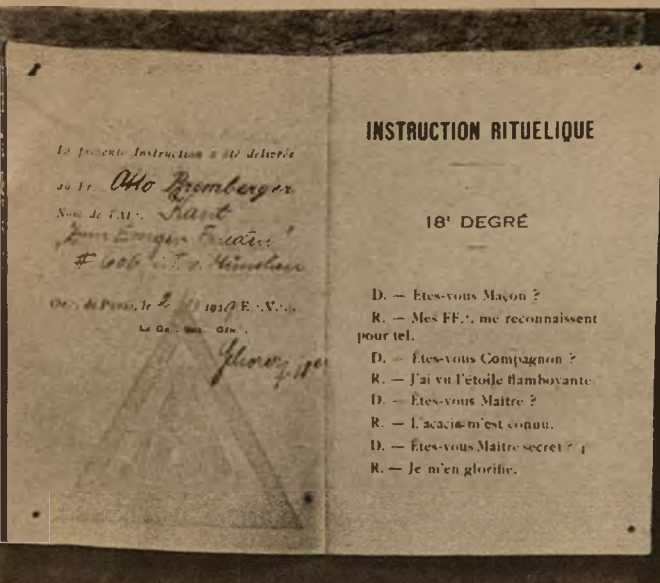 La présente Instruction a été délivrée
au Fr. Otto Bremberger
Kant
"Zum Ewigen
# 606 München
Or. de Paris, le 2 E.·.V.·.
INSTRUCTION RITUELIQUE
18ᵉ DEGRÉ
D. — Etes-vous Maçon ?
R. — Mes FF.·. me reconnaissent
pour tel.
D. — Etes-vous Compagnon ?
R. — J'ai vu l'étoile flamboyante
D. — Êtes-vous Maître ?
R. — L'acacia m'est connu.
D. — Êtes-vous Maître secret ?
R. — Je m'en glorifie.